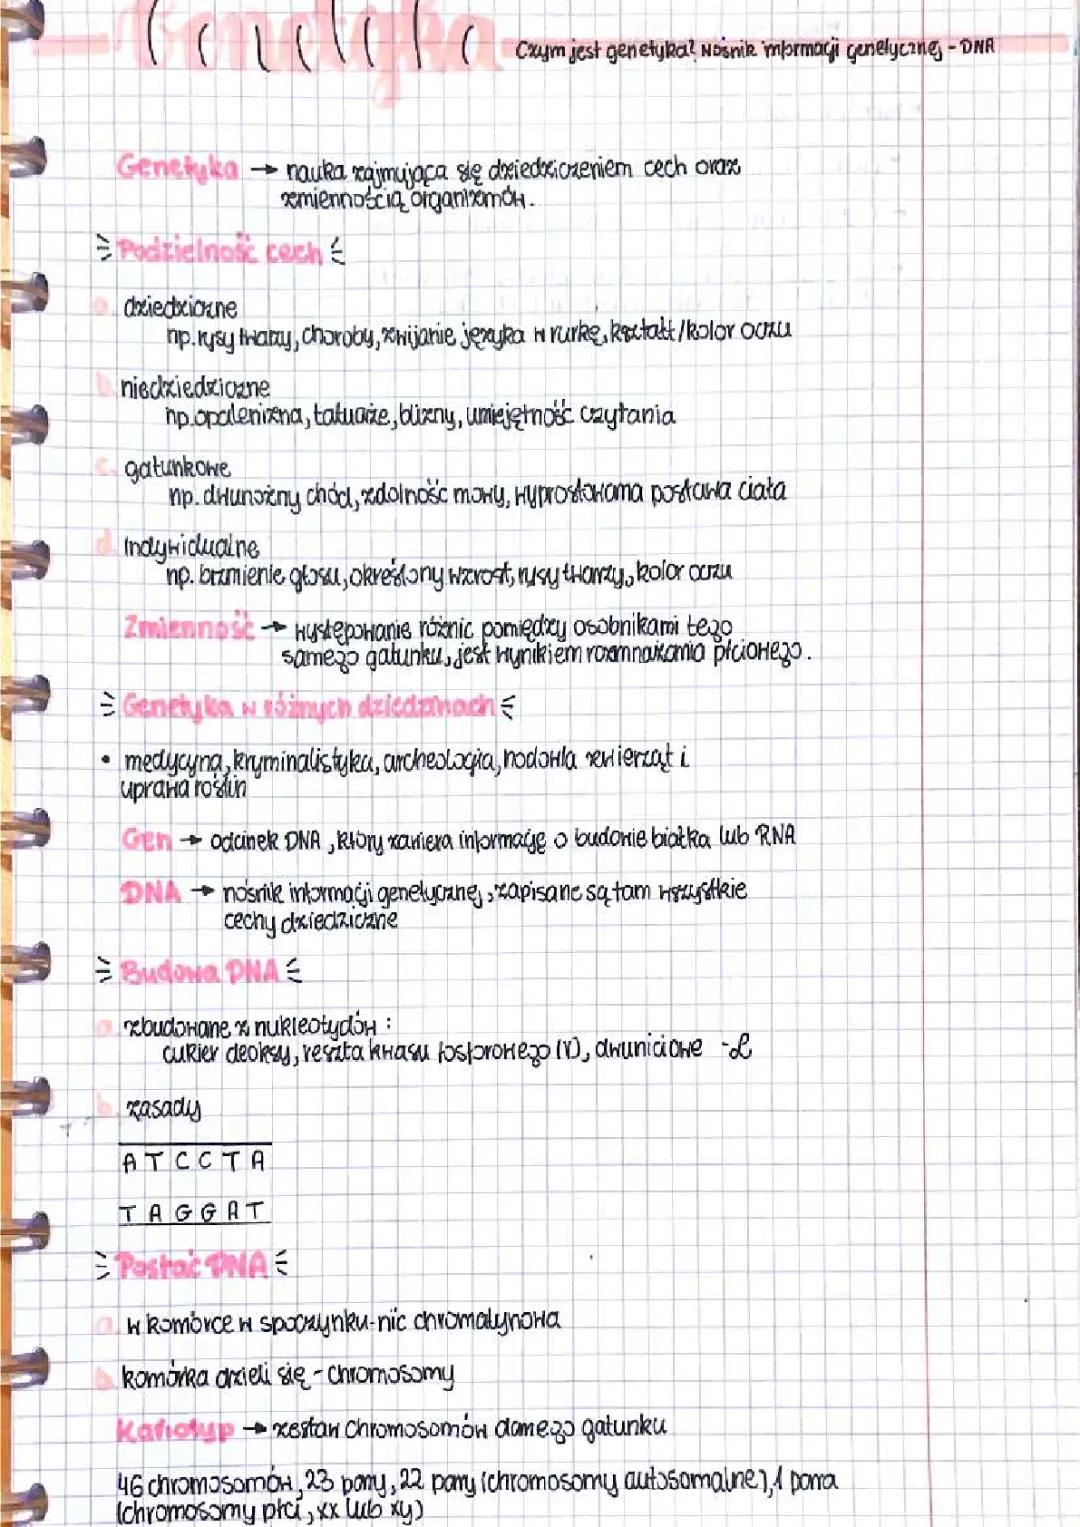 Genetyka
Czym jest genetyka? Nośnik informacji genetycznej - DNA
Genetyka → nauka zajmująca się dziedziczeniem cech oraz
zmiennością organizmów.
Podzielność cech
a. dziedziczne
np. rysy twarzy, choroby, zwijanie języka w rurkę, kształt/kolor oczu
b. niedziedziczne
np. opalenizna, tatuaże, blizny, umiejętność czytania
c. gatunkowe
np. dwunożny chód, zdolność mowy, wyprostowana postawa ciała
d. indywidualne
np. brzmienie głosu, określony wzrost, rysy twarzy, kolor oczu
Zmienność → występowanie różnic pomiędzy osobnikami tego
samego gatunku, jest wynikiem rozmnażania płciowego.
Genetyka w różnych dziedzinach
• medycyna, kryminalistyka, archeologia, hodowla zwierząt i
uprawa roślin
Gen → odcinek DNA, który zawiera informację o budowie białka lub RNA
DNA → nośnik informacji genetycznej, zapisane są tam wszystkie
cechy dziedziczne
Budowa DNA
a. zbudowane z nukleotydów :
cukier deoksy, reszta kwasu fosforowego (V), dwuniciowe
b. zasady
A T C C T A
T A G G A T
Postać DNA
a. w komórce w spoczynku - nić chromatynowa
b. komórka dzieli się - chromosomy
Kariotyp → zestaw chromosomów danego gatunku
46 chromosomów, 23 pary, 22 pary (chromosomy autosomalne), 1 para
(chromosomy płci, xx lub xy)